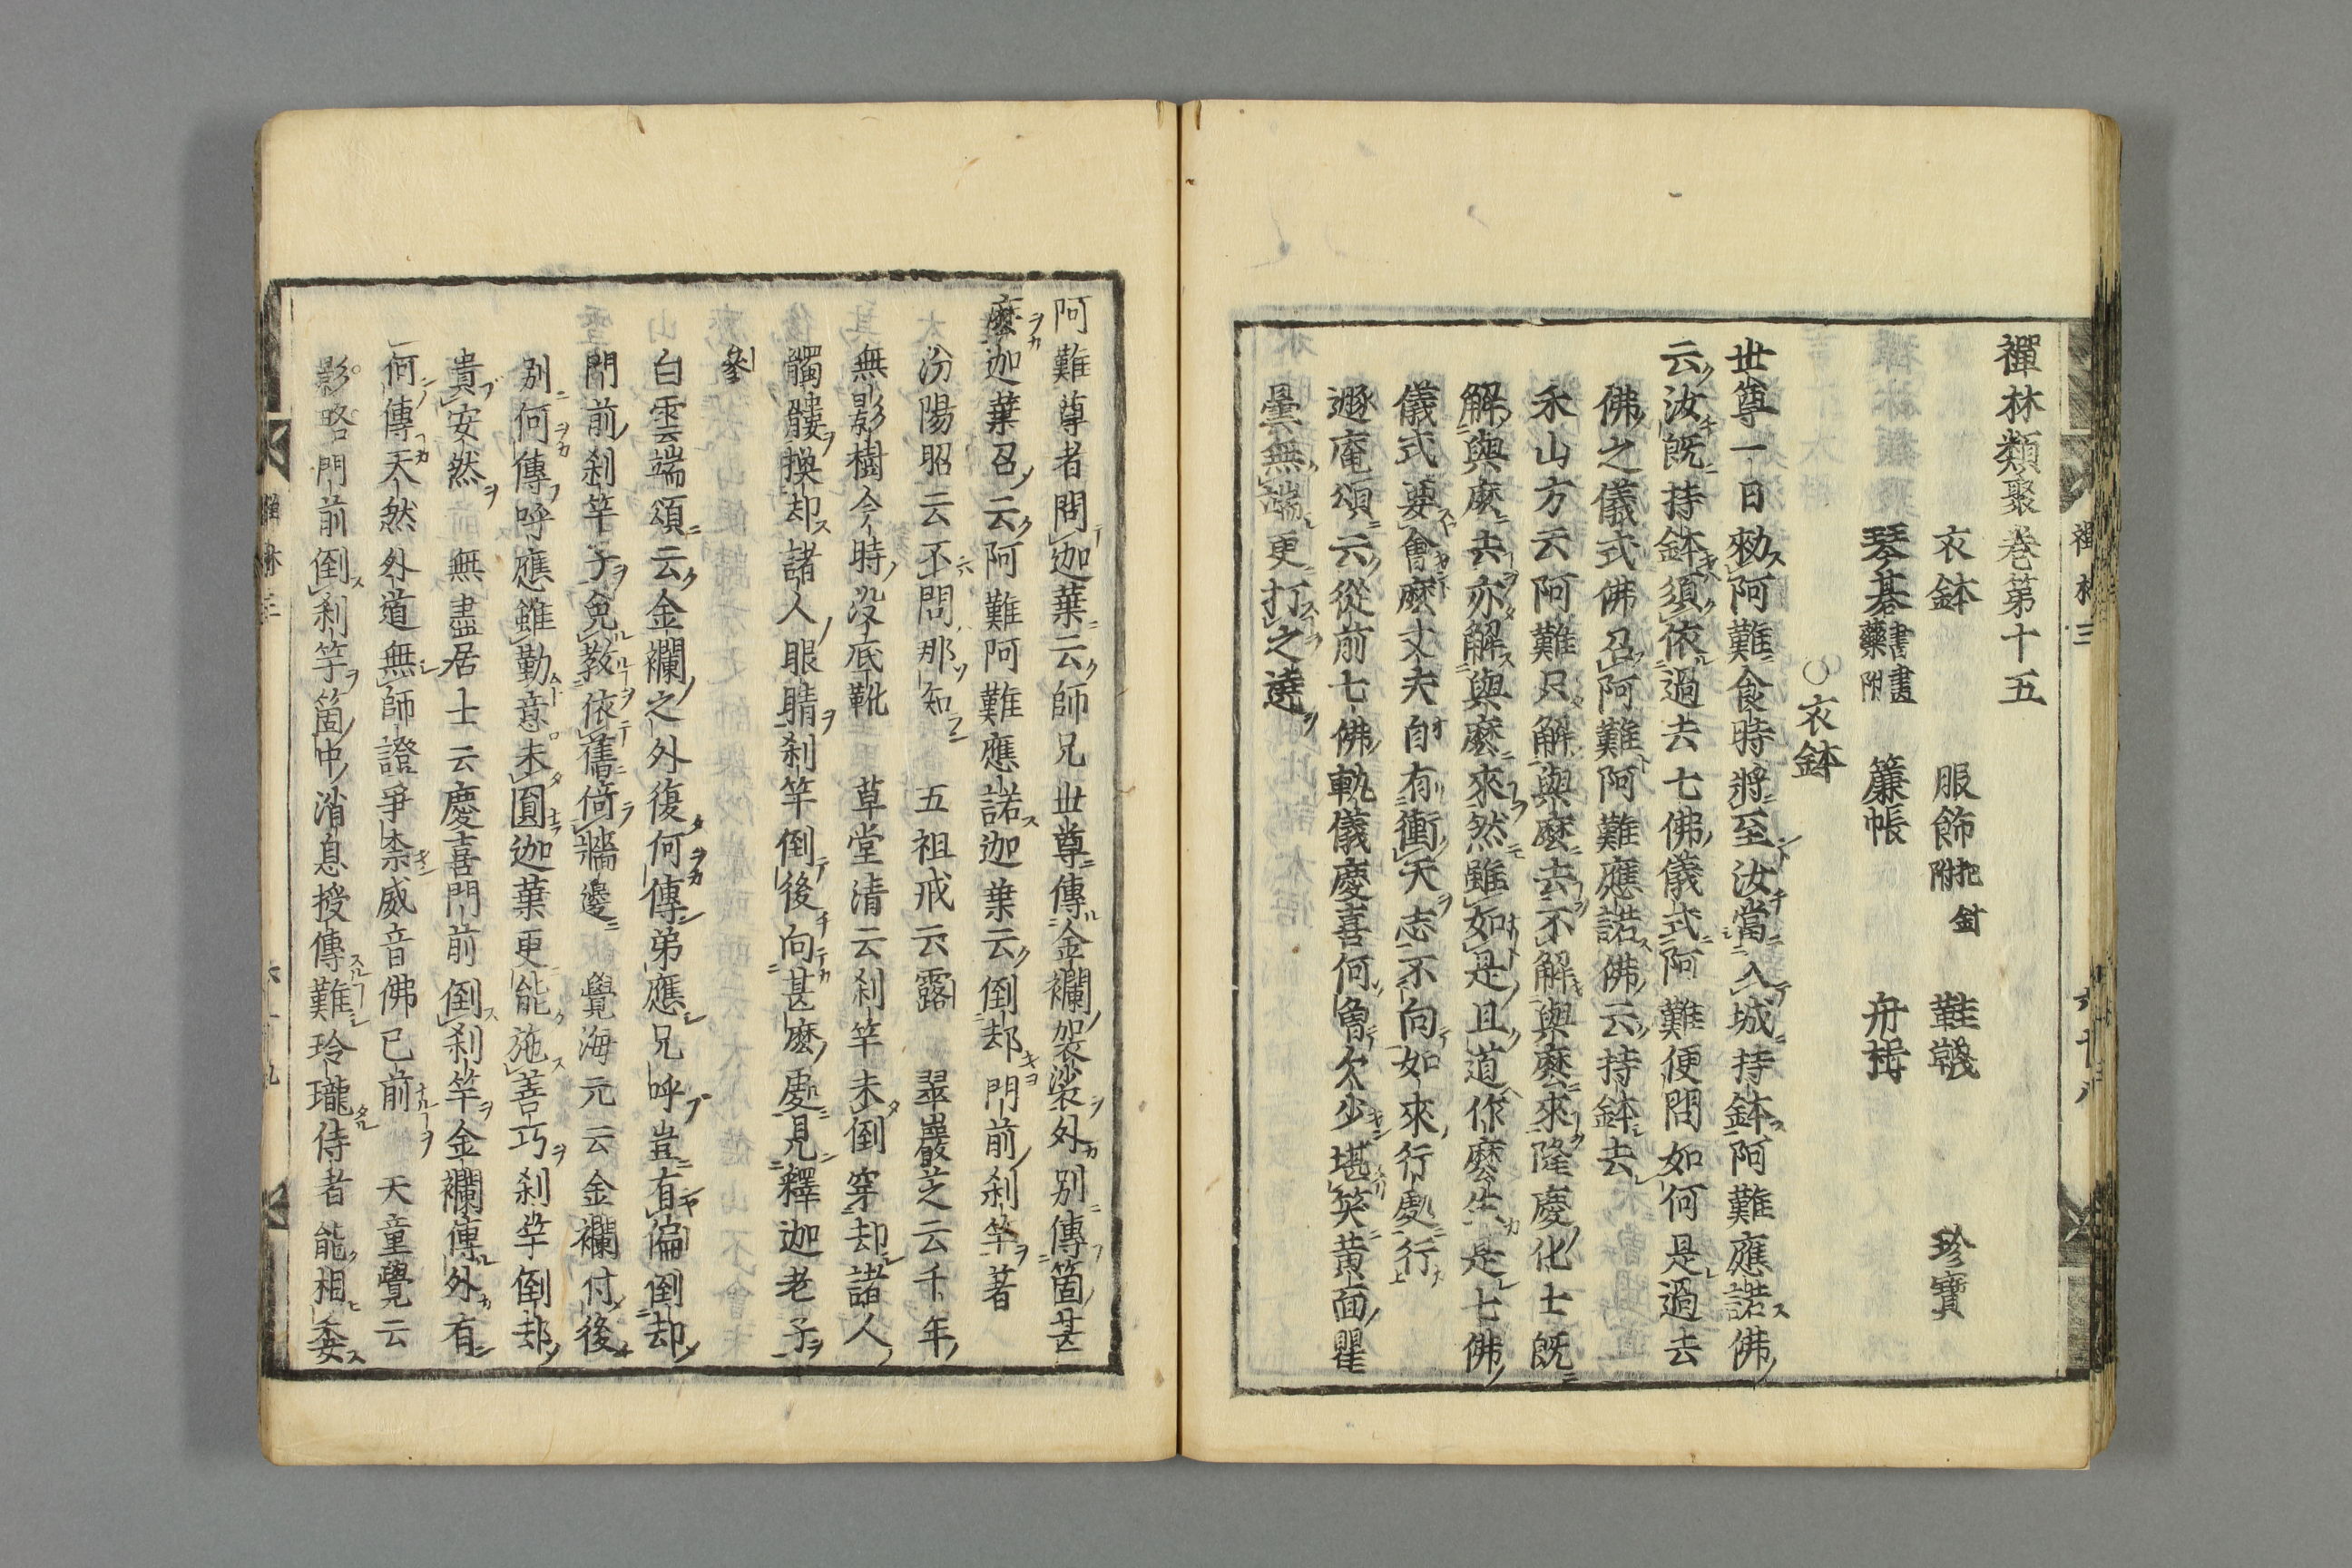 禪林類聚卷第十五
衣鉢　服飾把針附　鞋韈　珍寶
琴棊書畫藥附　簾帳　舟楫
○衣鉢
世尊一日勑阿難食時將至汝當入城持鉢阿難應諾佛
云汝既持鉢須依過去七佛儀式阿難便問如何是過去
佛之儀式佛召阿難阿難應諾佛云持鉢去
禾山方云阿難只解與麽去不解與麽來隆慶化士既
解與麽去亦解與麽來然雖如是且道作麽生是七佛
儀式要會麽丈夫自有衝天志不向如來行處行
遯庵頌云從前七佛軌儀慶喜何魯欠少堪笑黄面瞿
曇無端更打之遶
阿難尊者問迦葉云師兄世尊傳金襴袈裟外別傳箇甚
麽迦葉召云阿難阿難應諾迦葉云倒却門前刹竿著
汾陽昭云不問那知　五祖戒云露　翠巖芝云千年
無影樹今時没底靴　草堂清云刹竿未倒穿却諸人
髑髏換却諸人眼睛刹竿倒後向甚麽處見釋迦老子
參
白雲端頌云金襴之外復何傳弟應兄呼豈有偏倒却
門前刹竿子免教依舊倚牆邊　覺海元云金襴付後
別何傳呼應雖勤意未圓迦葉更能施善巧刹竿倒却
貴安然　無盡居士云慶喜門前倒刹竿金襴傳外有
何傳天然外道無師證爭柰威音佛已前　天童覺云
影略門前倒刹竿箇中消息授傳難玲瓏侍者能相委